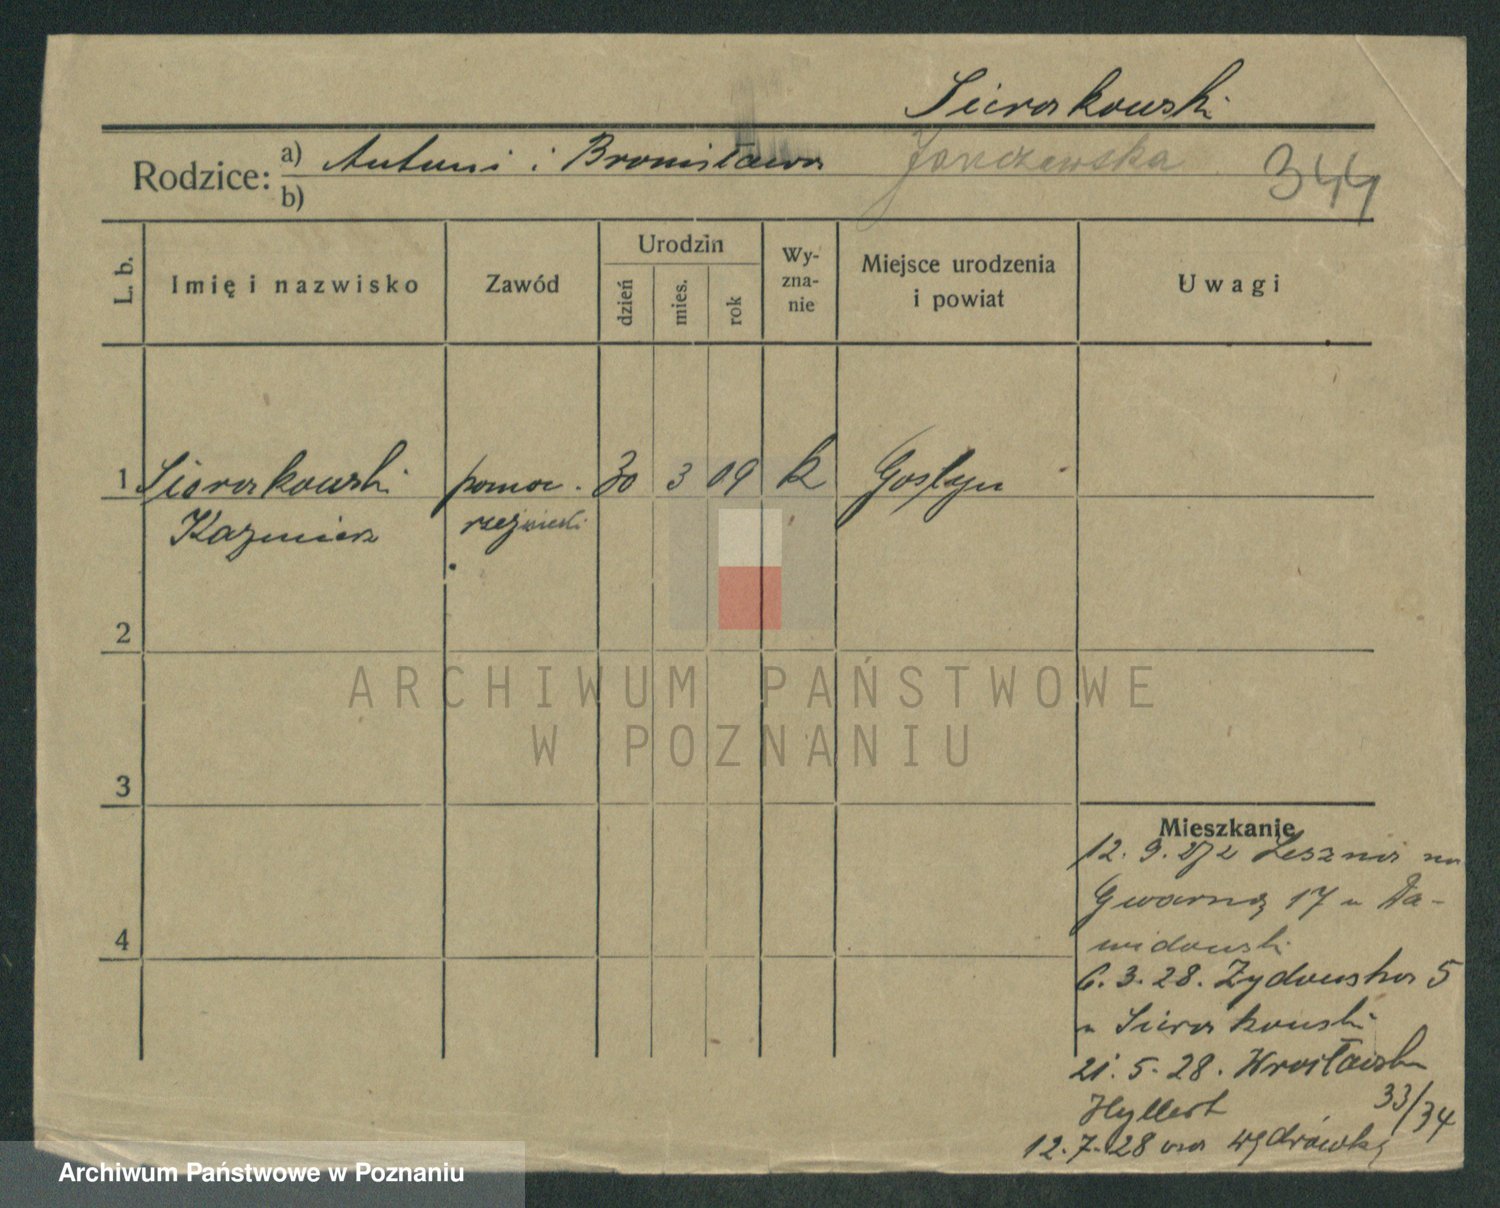 Sierakowski
Rodzice: a) Antoni i Bronisława Janczewska 344
b)
L. b.
Imię i nazwisko
Zawód
Urodzin
dzień
mies.
rok
Wy-
zna-
nie
Miejsce urodzenia
i powiat
Uwagi
1 Sierakowski pomoc. 30 3 09 k Gostyń
Kazimierz rzeźnicki
2
3
4
Mieszkanie
12. 9. 27 z Leszna na
Gwarną 17 u Da-
widowski
6. 3. 28. Żydowska 5
u Sierakowski
21. 5. 28. Wrocławska
Hyllert 33/34
12. 7. 28 na wędrówkę
ARCHIWUM PAŃSTWOWE
W POZNANIU
Archiwum Państwowe w Poznaniu